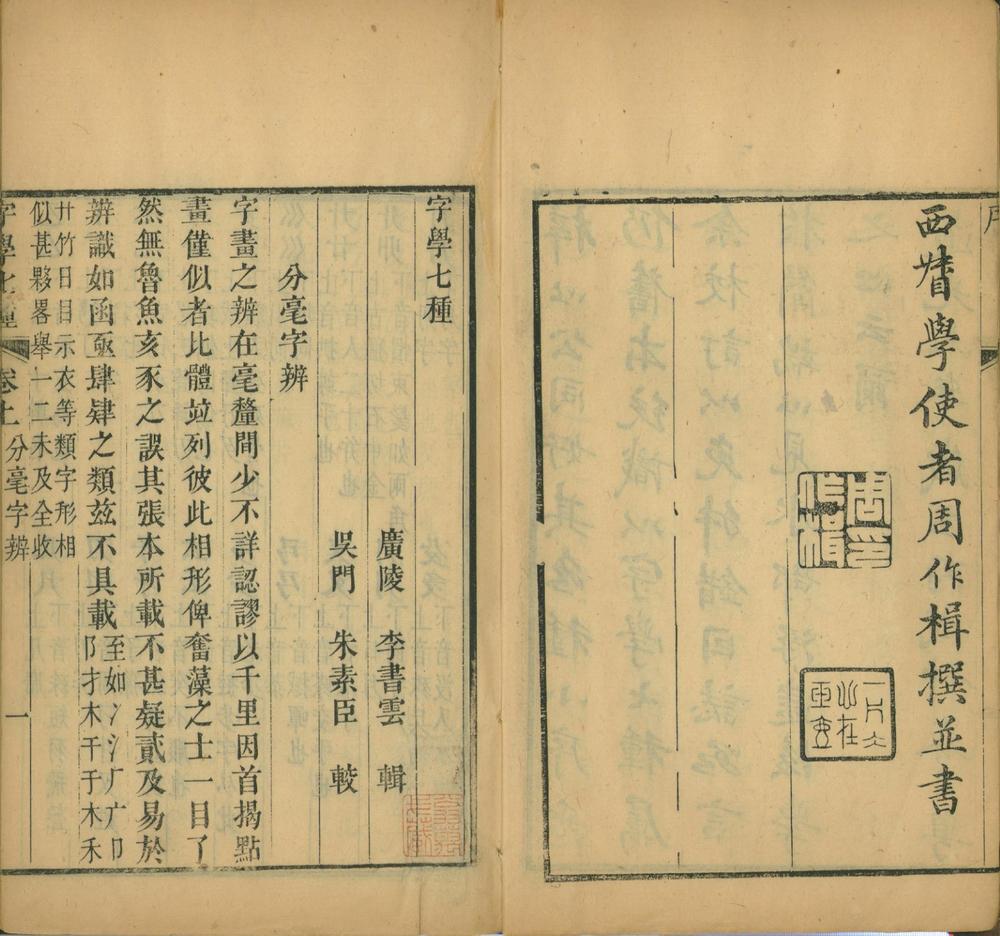 西晉學使者周作楫撰並書
字學七種
廣陵　李書雲　輯
吳門　朱素臣　較
分毫字辨
字畫之辨在毫釐間少不詳認謬以千里因首揭點
畫僅似者比體竝列彼此相形俾奮藻之士一目了
然無魯魚亥豕之誤其張本所載不甚疑貳及易於
辨識如函亟肆肄之類茲不具載至如冫氵厂广卩
阝才木干于木禾
廾竹日目示衣等類字形相
似甚夥畧舉一二未及全收
字學七種
卷上
分毫字辨
一